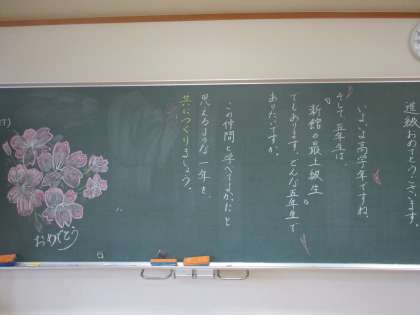 進級おめでとうございます。
いよいよ高学年ですね。
そして、五年生は、
新館の最上級生
でもあります。どんな五年生で
ありたいですか。
この仲間と学べてよかったと
思えるような一年を、
共につくりましょう。
おめでとう